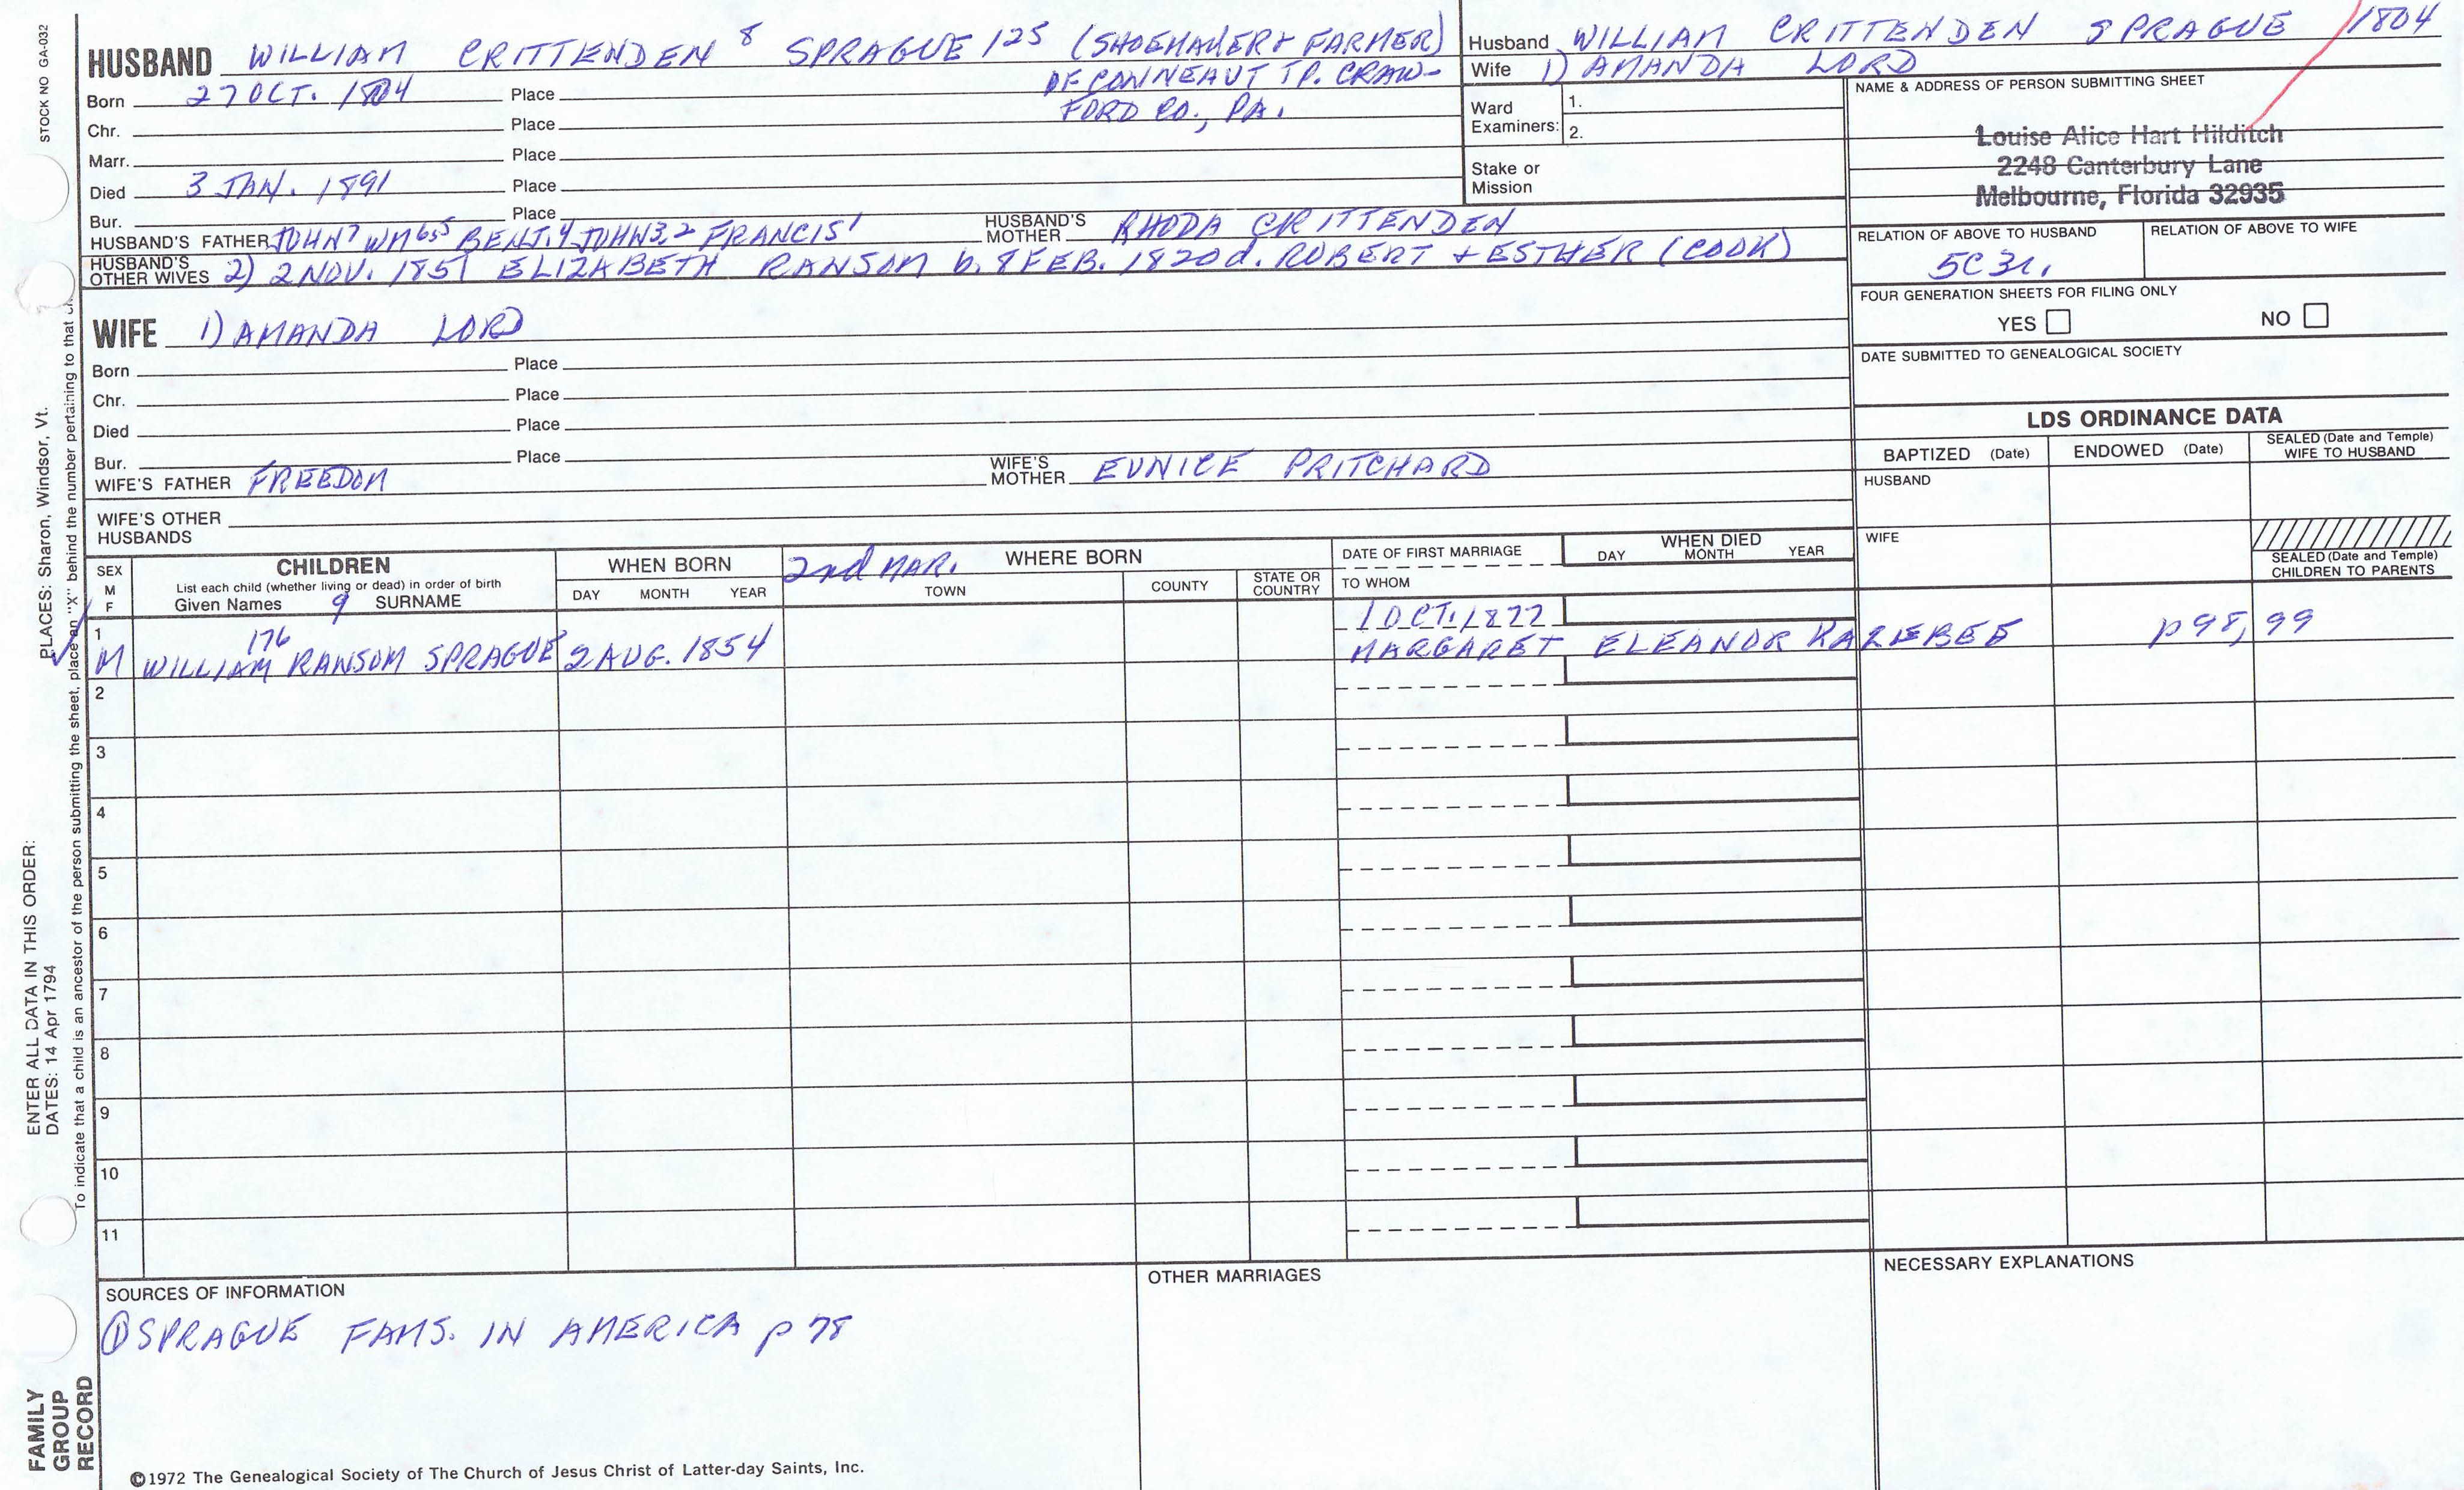 STOCK NO GA-032
HUSBAND WILLIAM CRITTENDEN 8 SPRAGUE 125 (SHOEMAKER & FARMER)
OF CONNEAUT TP. CRAW-
FORD CO., PA.
Born 27 OCT. 1804 Place
Chr. Place
Marr. Place
Died 3 JAN. 1891 Place
Bur. Place
HUSBAND'S FATHER JOHN7 WM6 55 BENJ.4 JOHN3,2 FRANCIS1 HUSBAND'S MOTHER RHODA CRITTENDEN
HUSBAND'S OTHER WIVES 2) 2 NOV. 1851 ELIZABETH RANSOM b. 8 FEB. 1820 d. ROBERT + ESTHER (COOK)
Husband WILLIAM CRITTENDEN SPRAGUE 1804
Wife 1) AMANDA LORD
Ward Examiners: 1.
2.
Stake or Mission
NAME & ADDRESS OF PERSON SUBMITTING SHEET
Louise Alice Hart Hilditch
2248 Canterbury Lane
Melbourne, Florida 32935
RELATION OF ABOVE TO HUSBAND RELATION OF ABOVE TO WIFE
5C 3r.
FOUR GENERATION SHEETS FOR FILING ONLY
YES NO
DATE SUBMITTED TO GENEALOGICAL SOCIETY
WIFE 1) AMANDA LORD
Born Place
Chr. Place
Died Place
Bur. Place
WIFE'S FATHER FREEDOM WIFE'S MOTHER EUNICE PRITCHARD
WIFE'S OTHER HUSBANDS
LDS ORDINANCE DATA
BAPTIZED (Date) ENDOWED (Date) SEALED (Date and Temple) WIFE TO HUSBAND
HUSBAND
WIFE
SEALED (Date and Temple) CHILDREN TO PARENTS
SEX M F
CHILDREN
List each child (whether living or dead) in order of birth
Given Names 9 SURNAME
WHEN BORN
DAY MONTH YEAR
2nd MAR. WHERE BORN
TOWN COUNTY STATE OR COUNTRY
DATE OF FIRST MARRIAGE
TO WHOM
WHEN DIED
DAY MONTH YEAR
1 176 1 OCT. 1877
M WILLIAM RANSOM SPRAGUE 2 AUG. 1854 MARGARET ELEANOR p 98, 99
2
3
4
5
6
7
8
9
10
11
SOURCES OF INFORMATION
① SPRAGUE FAMS. IN AMERICA p 78
OTHER MARRIAGES
NECESSARY EXPLANATIONS
©1972 The Genealogical Society of The Church of Jesus Christ of Latter-day Saints, Inc.
FAMILY GROUP RECORD
ENTER ALL DATA IN THIS ORDER:
DATES: 14 Apr 1794
PLACES: Sharon, Windsor, Vt.
To indicate that a child is an ancestor of the person submitting the sheet, place an "X" behind the number pertaining to that